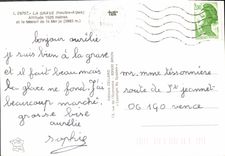 LA GRAVE (Hautes-Alpes)
Altitude 1526 mètres
et le Massif de la Meije (3983 m)
bonjour aurélie
je suis bien à la grave
et il fait beau mais
la glace ne fond. J'ai
beaucoup marché.
grosse bise
aurélie
sophie
mr mme
route de St jeannet
06140 vence